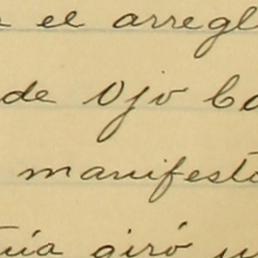 el arregl
de Ojo Ca
manifesto
giró